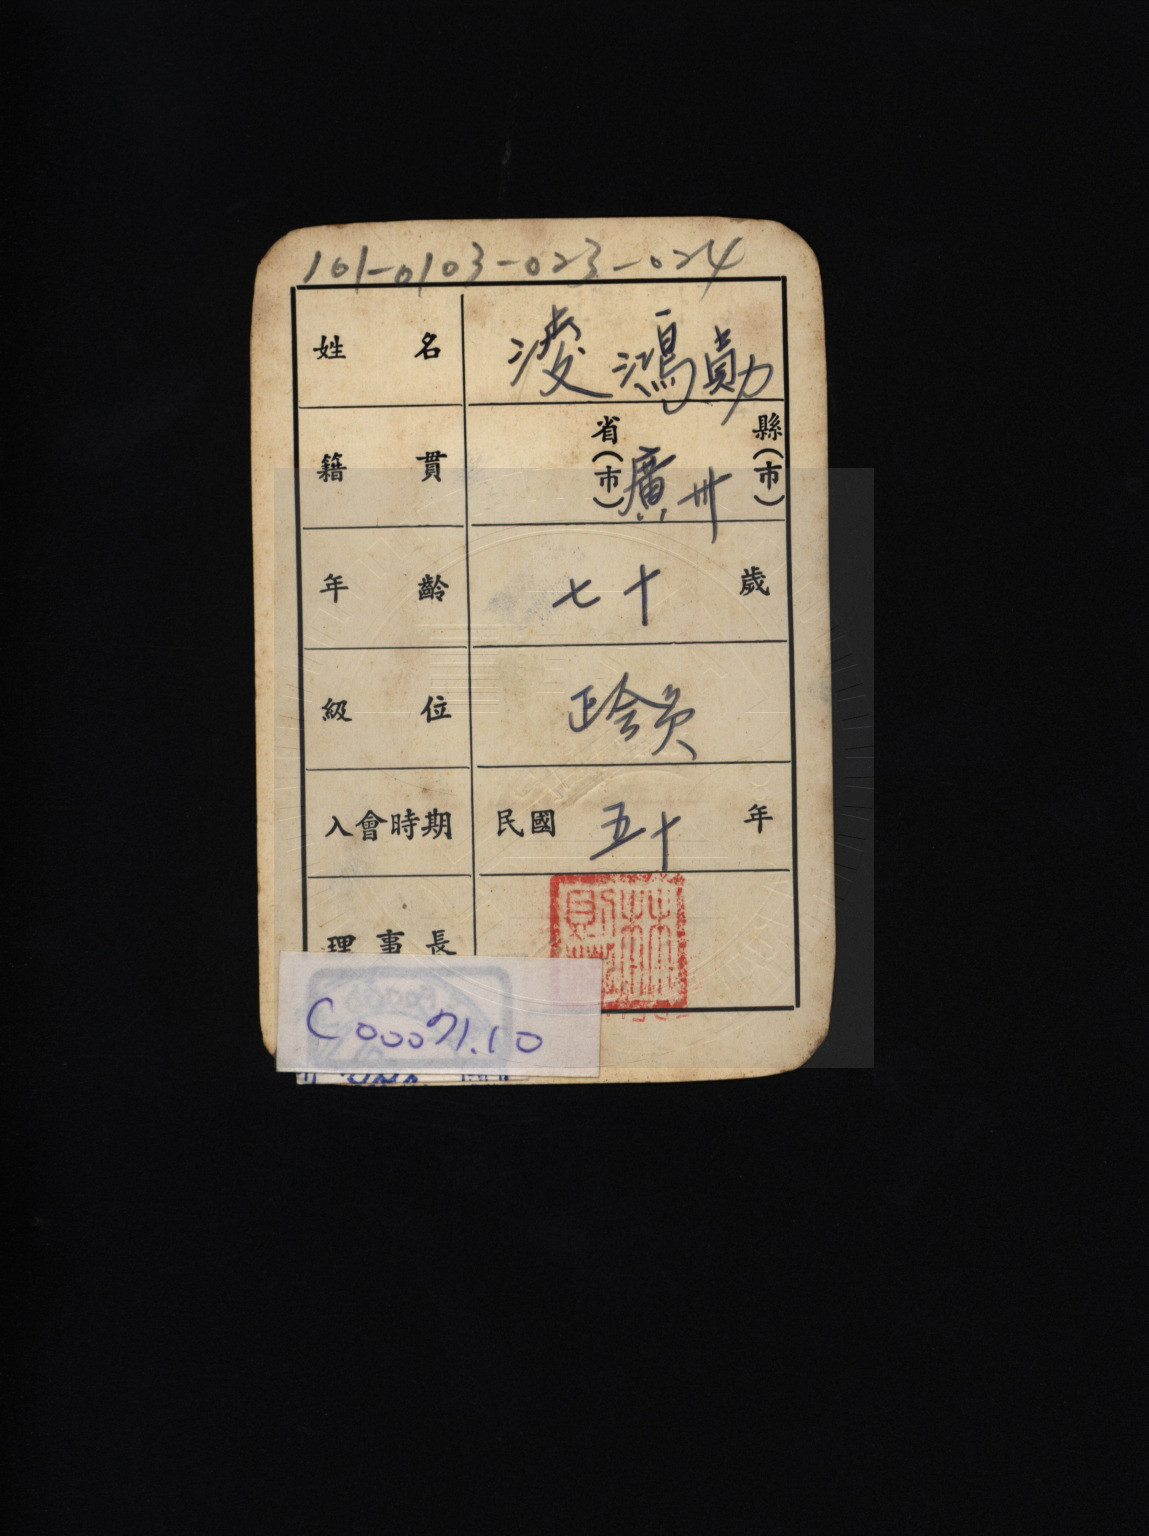 101-0103-023-024
姓名 凌鴻勛
籍貫 省(市) 廣州 縣(市)
年齡 七十 歲
級位 正會員
入會時期 民國 五十 年
理事長
C00071.10